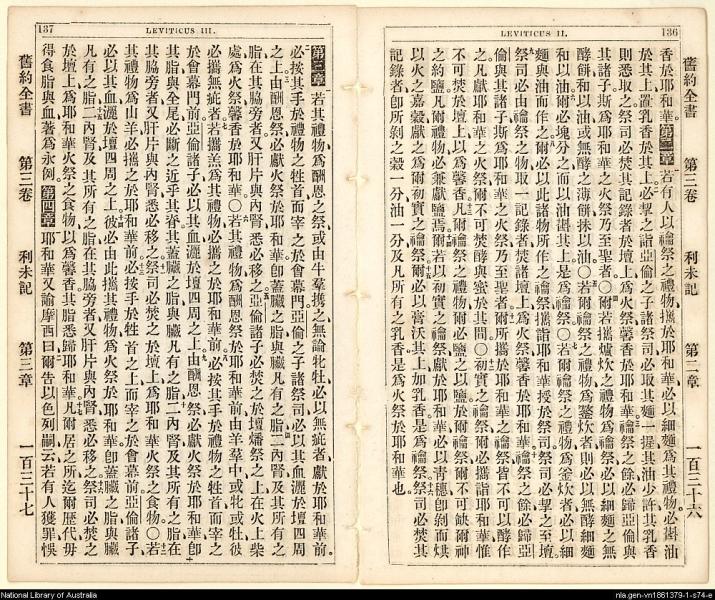 136
LEVITICUS II.
舊約全書 第三卷 利未記 第二章 一百三十六
香於耶和華。第二章 若有人以禴祭之禮物攜於耶和華必以細麵為其禮物必斟油
於其上置乳香於其上必挈之詣亞倫之子諸祭司必取其麵一握其油少許其乳香
則悉取之祭司必焚其記錄者於壇上為火祭馨香於耶和華禴祭之餘必歸亞倫與
其諸子斯為耶和華之火祭乃至聖者○爾若攜爐炊之禮物為禴祭必以細麵之無
酵餅和以油或無酵之薄餅抹以油○若爾禴祭之禮物為鏊炊者則必以無酵細麵
和以油爾必塊分之而以油斟其上是為禴祭○若爾禴祭之禮物為釜炊者必以細
麵與油而作之爾必以此諸物所作之禴祭攜詣耶和華授於祭司祭司必挈之至壇
祭司必由禴祭之物取一記錄者焚諸壇上為火祭馨香於耶和華禴祭之餘必歸亞
倫與其諸子斯為耶和華之火祭乃至聖者爾所攜於耶和華之禴祭皆不可以酵作
之凡獻耶和華之火祭爾不可焚酵與蜜於其間○初實之禴祭爾必攜詣耶和華惟
不可焚於壇上以為馨香凡爾禴祭之禮物爾必鹽之以鹽於爾禴祭不可缺爾神
之約鹽凡爾禮物必兼獻鹽焉爾若以初實之禴祭獻耶和華必以青穗即剝而烘
以火之嘉穀獻之為爾初實之禴祭爾必以膏沃其上加乳香是為禴祭祭司必焚其
記錄者即所剝之穀一分油一分及凡所有之乳香是為火祭於耶和華也。
137
LEVITICUS III.
第三章 若其禮物為酬恩之祭或由牛羣攜之無論牝牡必以無疵者獻於耶和華前
必按其手於禮物之牲首而宰之於會幕門亞倫之子諸祭司必以其血灑於壇四周
之上由酬恩祭必獻火祭於耶和華卽蓋臟之脂與臟凡有之脂二內腎及其所有之
脂在其脇旁者又肝片與內腎悉必移之亞倫諸子必焚之於壇燔祭之上在火上柴
處為火祭馨香於耶和華○若其禮物為酬恩祭於耶和華前由羊羣中或牝或牡彼
必攜無疵者若攜羔為其禮物必攜之於耶和華前必按其手於禮物之牲首而宰之
於會幕門前亞倫諸子必以其血灑於壇四周之上由酬恩祭必獻火祭於耶和華卽
其脂與全尾必斷之近乎其脊其蓋臟之脂與臟凡有之脂二內腎及其所有之脂在
其脇旁者又肝片與內腎悉必移之祭司必焚之於壇上為耶和華火祭之食物○若
其禮物為山羊必攜之於耶和華前必按手於牲首之上而宰之於會幕前亞倫諸子
必以其血灑於壇四周之上彼必由此攜其禮物為火祭於耶和華卽蓋臟之脂與臟
凡有之脂二內腎及其所有之脂在其脇旁者又肝片與內腎悉必移之祭司必焚之
於壇上為耶和華火祭之食物以為馨香其脂悉歸耶和華凡爾居之所迄爾歷代毋
得食脂與血著為永例。第四章 耶和華又諭摩西曰爾告以色列嗣云若有人獲罪悞
舊約全書 第三卷 利未記 第三章 一百三十七
National Library of Australia
nla.gen-vn1861379-1-s74-e